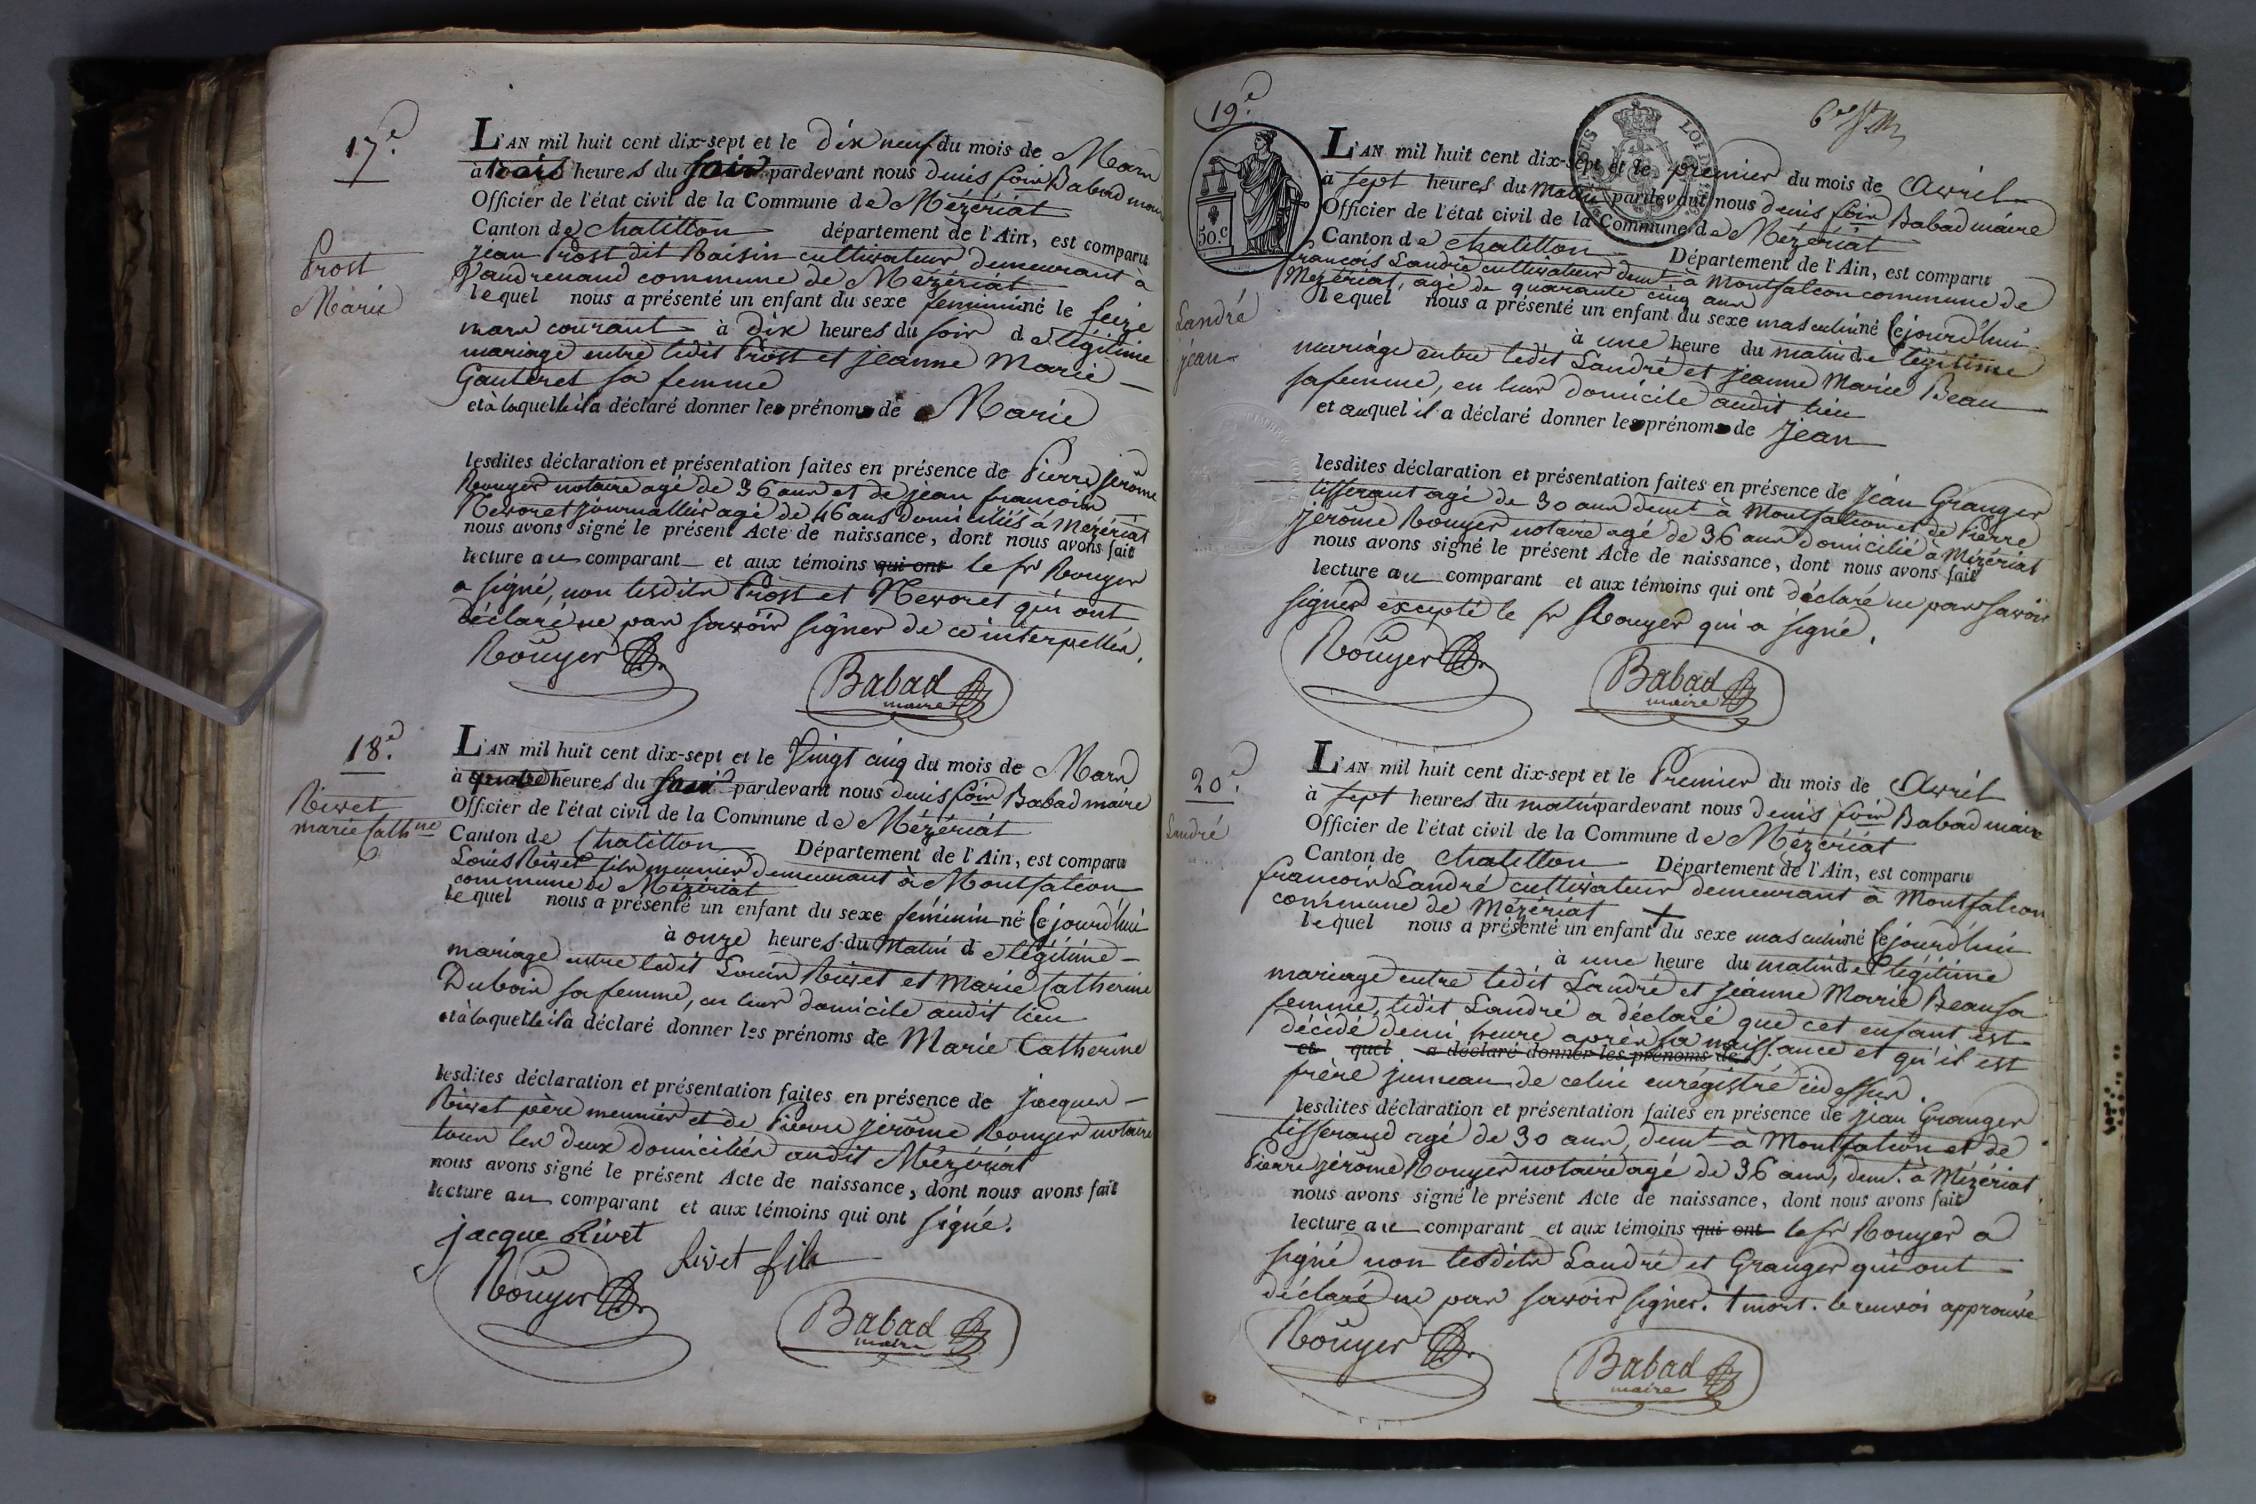 17.e
Prost
Marie
L'AN mil huit cent dix-sept et le dix neuf du mois de Mars
à trois heures du soir pardevant nous denis foin Babad maire
Officier de l'état civil de la Commune de Mézériat
Canton de chatillon département de l'Ain, est comparu
jean Prost dit Raisin cultivateur demeurant à
Vaudrenand commune de Mézériat
lequel nous a présenté un enfant du sexe femininé né le seize
mars courant à dix heures du soir de légitime
mariage entre ledit Prost et jeanne Marie
Gauteret sa femme
et à laquelle il a déclaré donner les prénoms de Marie
lesdites déclaration et présentation faites en présence de Pierre jerôme
Rouyer notaire agé de 36 ans et de jean françois
Nevoret journallier agé de 46 ans domiciliés à Mézériat
nous avons signé le présent Acte de naissance, dont nous avons fait
lecture au comparant et aux témoins qui ont le sr Rouyer
a signé, non lesdits Prost et Nevoret qui ont
déclaré ne pas savoir signer de ce interpellés.
Rouyer
Babad
maire
18.e
Rivet
marie Cathne
L'AN mil huit cent dix-sept et le Vingt cinq du mois de Mars
à quatre heures du soir pardevant nous denis foin Babad maire
Officier de l'état civil de la Commune de Mézériat
Canton de Chatillon Département de l'Ain, est comparu
Louis Rivet fils meunier demeurant à Montfalcon
commune de Mézériat
lequel nous a présenté un enfant du sexe féminin né Cejourd'hui
à onze heures du Matin de légitime
mariage entre ledit Louis Rivet et Marie Catherine
Dubois sa femme, en leur domicile audit lieu
et à laquelle il a déclaré donner les prénoms de Marie Catherine
lesdites déclaration et présentation faites en présence de Jacques
Rivet père meunier et de Pierre jérôme Rouyer notaire
tous les deux domiciliés audit Mézériat
nous avons signé le présent Acte de naissance, dont nous avons fait
lecture au comparant et aux témoins qui ont signé.
jacque Rivet
Rivet fils
Rouyer
Babad
maire
19.e
50.c
LOI DE
Landré
jean
L'AN mil huit cent dix-sept et le premier du mois de Avril
à sept heures du Matin pardevant nous denis foin Babad maire
Officier de l'état civil de la Commune de Mézériat
Canton de chatillon Département de l'Ain, est comparu
françois Landré cultivateur demt à Montfalcon commune de
Mézériat, agé de quarante cinq ans
lequel nous a présenté un enfant du sexe masculin né Cejourd'hui
à une heure du matin de légitime
mariage entre ledit Landré et jeanne Marie Beau
sa femme, en leur domicile audit lieu
et auquel il a déclaré donner les prénoms de jean
lesdites déclaration et présentation faites en présence de jean Granger
tisserant agé de 30 ans demt à Montfalcon et de Pierre
jérôme Rouyer notaire agé de 36 ans domicilié à Mézériat
nous avons signé le présent Acte de naissance, dont nous avons fait
lecture au comparant et aux témoins qui ont déclaré ne pas savoir
signer excepté le sr Rouyer qui a signé.
Rouyer
Babad
maire
20.e
Landré
L'AN mil huit cent dix-sept et le Premier du mois de Avril
à sept heures du matin pardevant nous denis foin Babad maire
Officier de l'état civil de la Commune de Mézériat
Canton de chatillon Département de l'Ain, est comparu
francois Landré cultivateur demeurant à Montfalcon
commune de Mézériat
lequel nous a présenté un enfant + du sexe masculin né Cejourd'hui
à une heure du matin de légitime
mariage entre ledit Landré et jeanne Marie Beau sa
femme, ledit Landré a déclaré que cet enfant est
décédé demi heure après sa naissance et qu'il est
et quel a déclaré donner les prénoms de
frère jumeau de celui enrégistré ci dessus.
lesdites déclaration et présentation faites en présence de jean Granger
tisserand agé de 30 ans, demt à Montfalcon et de
Pierre jérôme Rouyer notaire agé de 36 ans, demt. à Mézériat.
nous avons signé le présent Acte de naissance, dont nous avons fait
lecture au comparant et aux témoins qui ont le sr Rouyer a
signé non lesdits Landré et Granger qui ont
déclaré ne pas savoir signer. + mort. le renvoi approuvé
Rouyer
Babad
maire